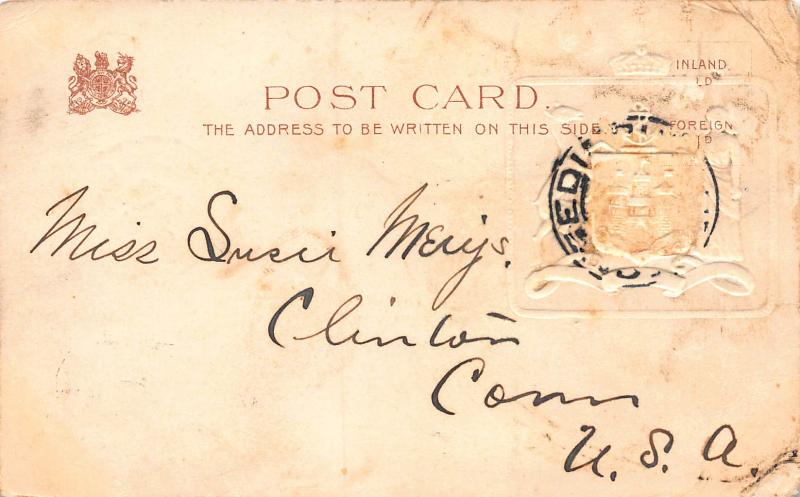 POST CARD.
THE ADDRESS TO BE WRITTEN ON THIS SIDE.
INLAND
½D
FOREIGN
1D
Miss Susie
Clinton
Conn
U.S.A.